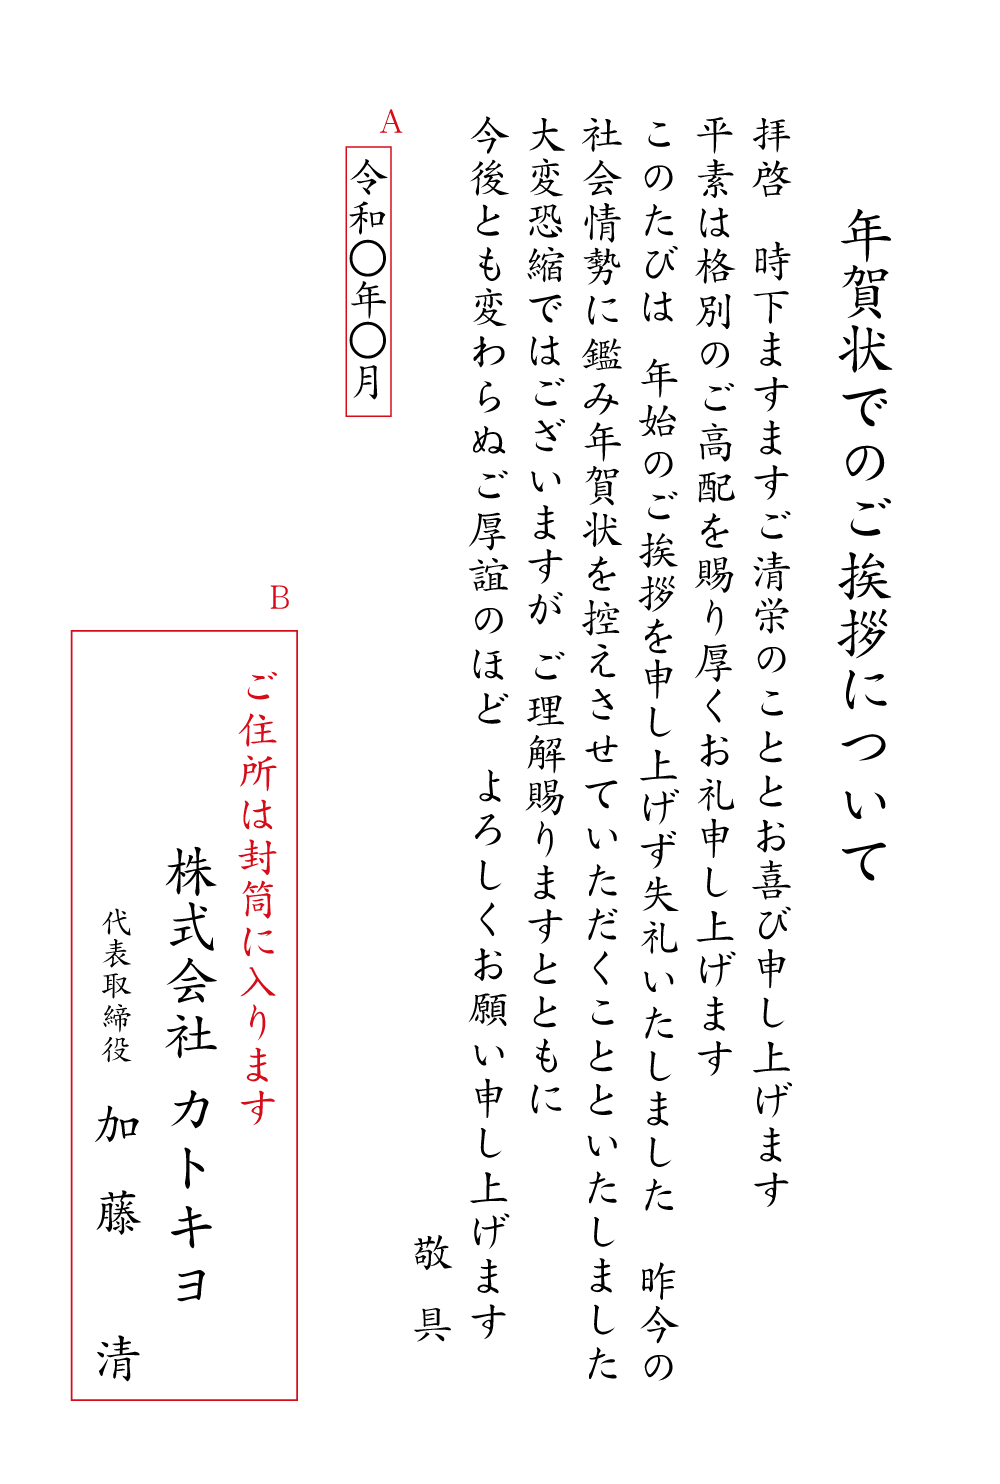 年賀状でのご挨拶について
拝啓　時下ますますご清栄のこととお喜び申し上げます
平素は格別のご高配を賜り厚くお礼申し上げます
このたびは　年始のご挨拶を申し上げず失礼いたしました　昨今の
社会情勢に鑑み年賀状を控えさせていただくことといたしました
大変恐縮ではございますが　ご理解賜りますとともに
今後とも変わらぬご厚誼のほど　よろしくお願い申し上げます
敬具
A
令和〇年〇月
B
ご住所は封筒に入ります
株式会社 カトキヨ
代表取締役　加藤　清